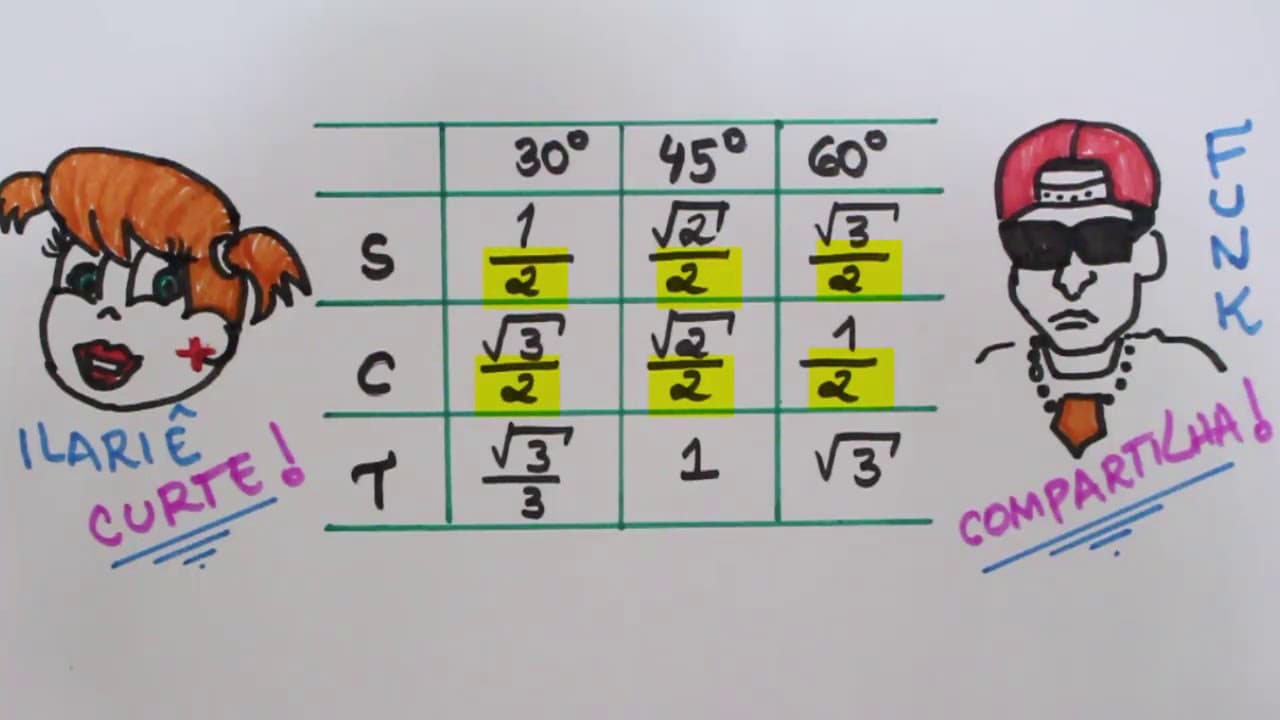 30° 45° 60°
S 1/2 √2/2 √3/2
C √3/2 √2/2 1/2
T √3/3 1 √3
ILARIÊ
CURTE!
FUNK
COMPARTILHA!